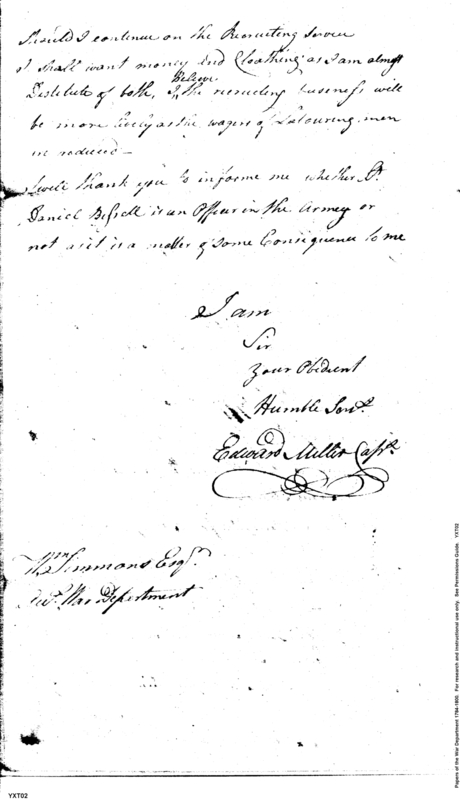 Should I continue on the Recruiting Service
I shall want money and Cloathing as I am almost
Destitute of both, I Believe the recruiting business will
be more lively as the wages of Labouring men
is reduced —
I will thank you to informe me whether
Daniel Bissell is an Officer in the Army or
not as it is a matter of Some Consequence to me
I am
Sir
Your Obedient
Humble Servt.
Edward Miller Capt.
Wm Simmons Esqr.
War Department
Papers of the War Department 1784-1800. For research and instructional use only. See Permissions Guide. YXT02
YXT02